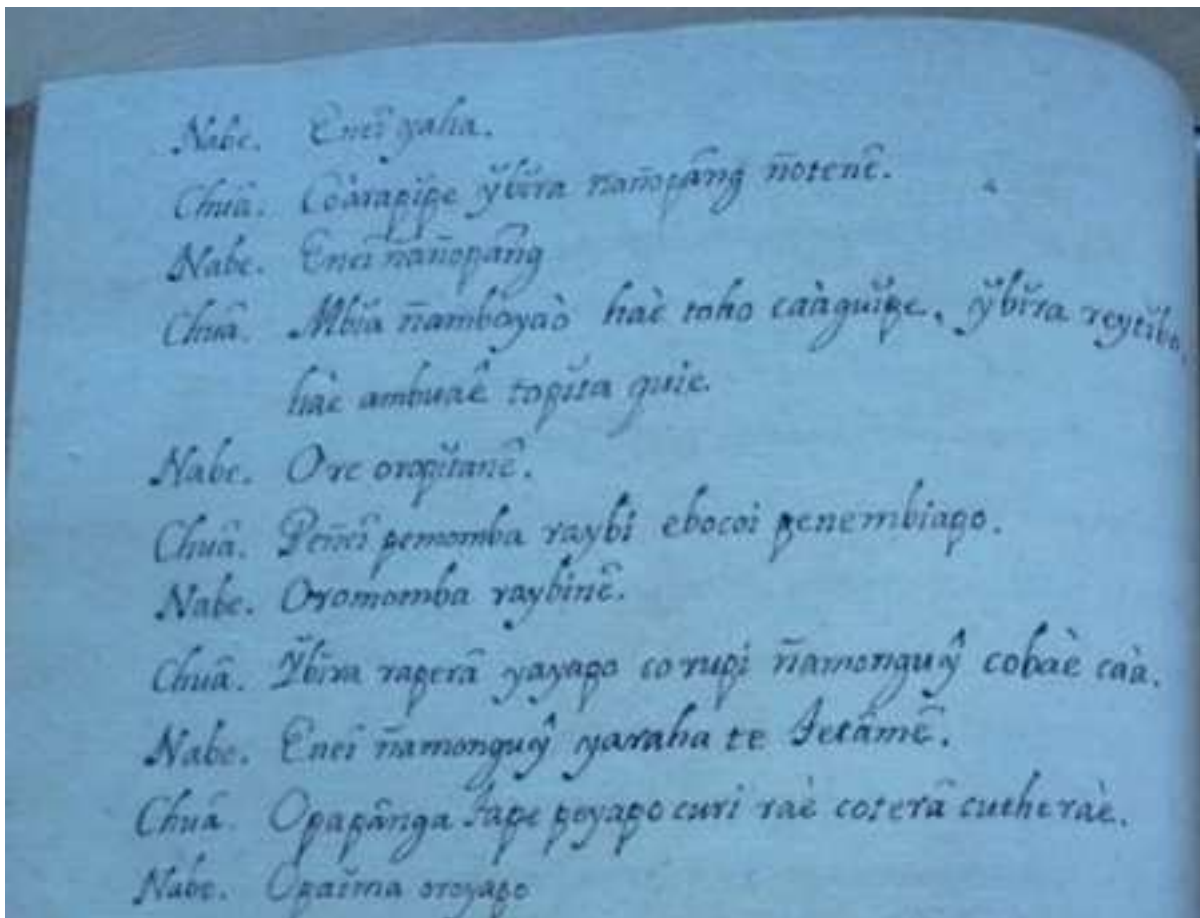 Nabe. Enei yaha.
Chuâ. Coàrapĭpe ỹbĭra ñañopâng ñotenê.
Nabe. Enei ñañopâng
Chuâ. Mbĭa ñambòyaò haè toho caàguĭpe, ỹbĭra reytĭbo,
haè ambuaê topĭta quie.
Nabe. Ore oropĭtanê.
Chuâ. Peñeî pemomba raybi ebocoi penembiapo.
Nabe. Oromomba raybinê.
Chuâ. Ỹbĭra raperâ yayapo corupi ñamonguŷ cobaè caà.
Nabe. Enei ñamonguŷ yaraha te Jetâmê.
Chuâ. Opapânga tape peyapo curi raè coterâ cuehe raè.
Nabe. Opaĭma oroyapo